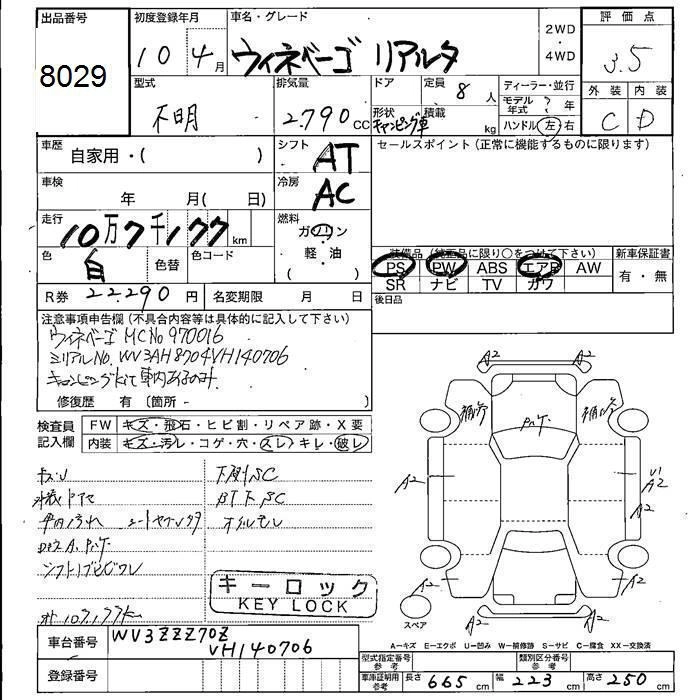 出品番号
8029
初度登録年月
10年 4月
車名・グレード
ウィネベーゴ リアルタ
2WD
・
4WD
評価点
3.5
外装 内装
C D
型式
不明
排気量
2790 CC
ドア
形状
キャンピング車
定員
8 人
積載
kg
ディーラー・並行
モデル年式 ? 年
ハンドル 左 右
車歴
自家用・( )
シフト
AT
セールスポイント(正常に機能するものに限ります)
車検
年 月( 日)
冷房
AC
走行
10万7千177 km
燃料
ガソリン
・
軽油
( )
色
白
色替
色コード
装備品(純正品に限り○をつけて下さい)
PS PW ABS エアB AW
SR ナビ TV カワ
新車保証書
有・無
R券 22290 円
名変期限 月 日
後日品
注意事項申告欄(不具合内容等は具体的に記入して下さい)
ウィネベーゴ MC No 970016
シリアルNo. WV3AH8704VH140706
キャンピングkit 車内あるのみ
修復歴 有(箇所- )
検査員記入欄
FW キズ・飛石・ヒビ割・リペア跡・X要
内装 キズ・汚レ・コゲ・穴・スレ・キレ・破レ
下廻りSC
キーロック
KEY LOCK
A2 A2
補修 補修
A2
U1
A2
A2
A2 A2
A2 A2
スペア
車台番号
WV3ZZZ70Z
VH140706
登録番号
A-キズ E-エクボ U-凹み W-補修跡 S-サビ C-腐食 XX-交換済
型式指定番号 参考
類別区分番号 参考
車庫証明用 参考
長さ 665 cm
幅 223 cm
高さ 250 cm